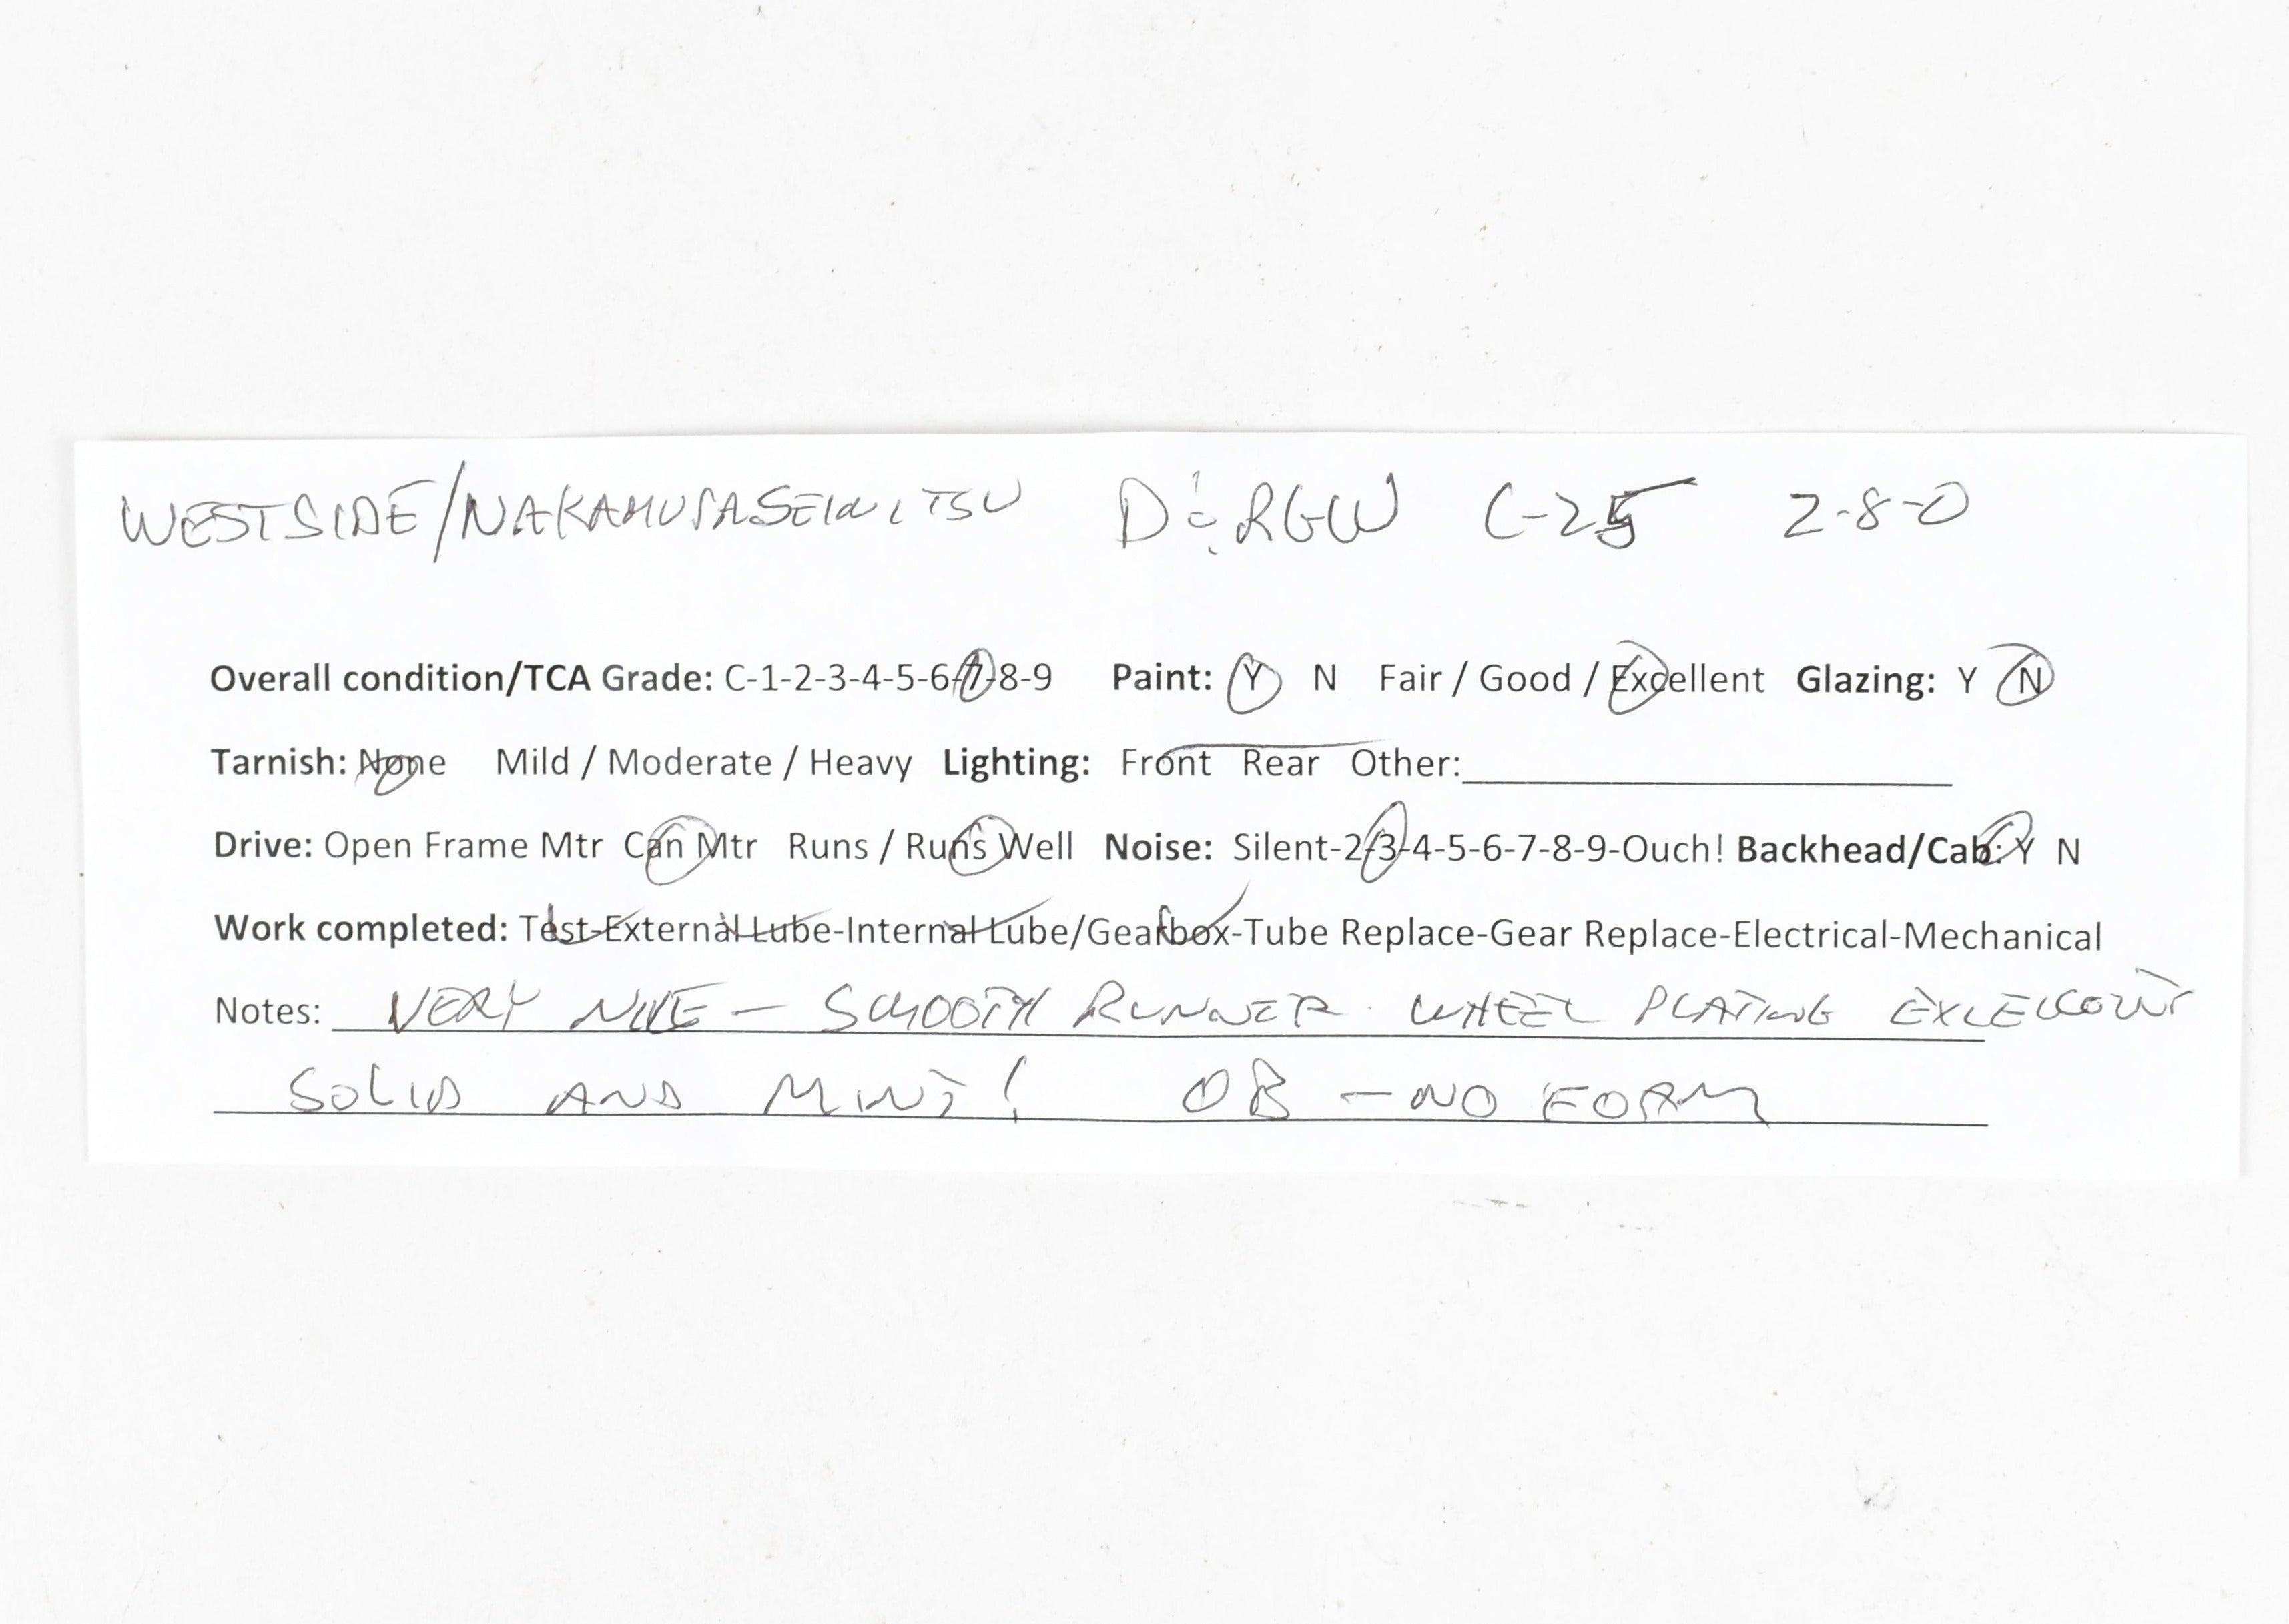 WESTSIDE/NAKAMURASEIMITSU D&RGW C-25 2-8-0
Overall condition/TCA Grade: C-1-2-3-4-5-6-7-8-9 Paint: Y N Fair / Good / Excellent Glazing: Y N
Tarnish: None Mild / Moderate / Heavy Lighting: Front Rear Other:
Drive: Open Frame Mtr Can Mtr Runs / Runs Well Noise: Silent-2-3-4-5-6-7-8-9-Ouch! Backhead/Cab: Y N
Work completed: Test-External Lube-Internal Lube/Gearbox-Tube Replace-Gear Replace-Electrical-Mechanical
Notes: VERY NICE - SMOOTH RUNNER. WHEEL PLATING EXCELLENT
SOLID AND MINT! OB - NO FOAM